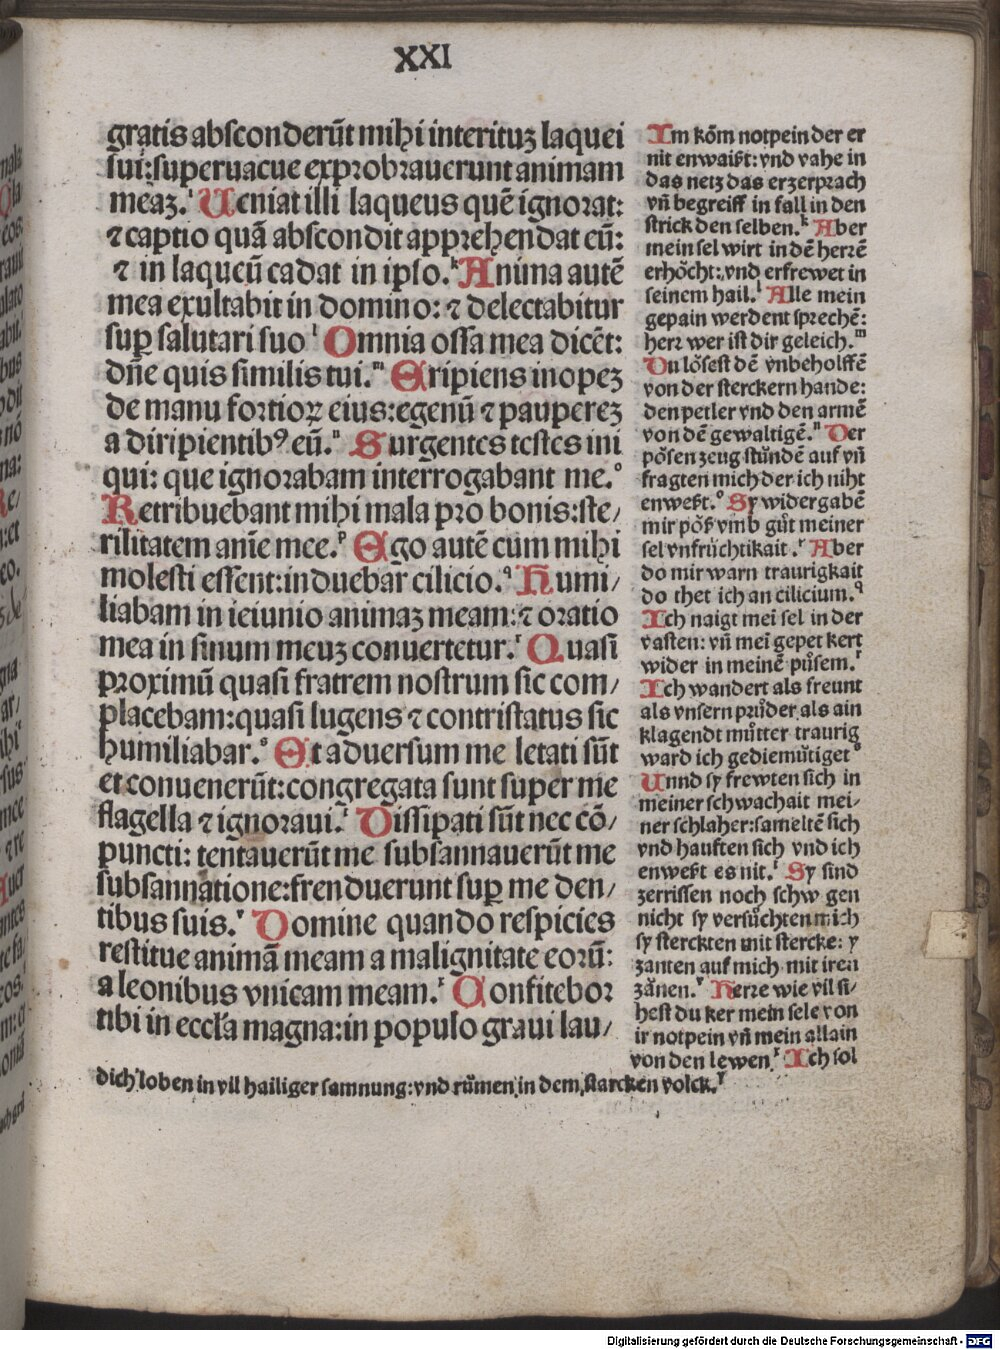 XXI
gratis absconderūt mihi interituꝫ laquei
sui: superuacue exprobrauerunt animam
meaꝫ.ⁱ Ueniat illi laqueus quē ignorat:
⁊ captio quā abscondit apprehendat eū:
⁊ in laqueū cadat in ipso.ᵏ Anima autē
mea exultabit in domino: ⁊ delectabitur
sup̲ salutari suo ˡ Omnia ossa mea dicēt:
dn̄e quis similis tui.ᵐ Eripiens inopeꝫ
de manu fortioꝝ eius: egenū ⁊ paupereꝫ
a diripientibꝰ eū.ⁿ Surgentes testes ini
qui: que ignorabam interrogabant me.ᵒ
Retribuebant mihi mala pro bonis: ste/
rilitatem anīe mee.ᵖ Ego autē cum mihi
molesti essent: induebar cilicio.ᑫ Humi/
liabam in ieiunio animaꝫ meam: ⁊ oratio
mea in sinum meuꝫ conuertetur.ʳ Quasi
proximū quasi fratrem nostrum sic com/
placebam: quasi lugens ⁊ contristatus sic
humiliabar.ˢ Et aduersum me letati sūt
et conuenerūt: congregata sunt super me
flagella ⁊ ignoraui.ᵗ Dissipati sūt nec cō/
puncti: tentauerūt me subsannauerūt me
subsannatione: frenduerunt sup̲ me den/
tibus suis.ᵛ Domine quando respicies
restitue animā meam a malignitate eorū:
a leonibus vnicam meam.ˣ Confitebor
tibi in eccl̄a magna: in populo graui lau/
Im kōm notpein der er
nit enwaißt: vnd vahe in
das netz das er zerprach
vn̄ begreiff in fall in den
strick den selben.ᵏ Aber
mein sel wirt in dē herrē
erhöcht: vnd erfrewet in
seinem hail.ˡ Alle mein
gepain werdent sprechē:
herr wer ist dir geleich.ᵐ
Du lösest dē vnbeholffē
von der sterckern hande:
den petler vnd den armē
von dē gewaltigē.ⁿ Der
pösen zeug stůndē auf vn̄
fragten mich der ich niht
enweßt.ᵒ Sy widergabē
mir pöß vmb gůt meiner
sel vnfrüchtikait.ᵖ Aber
do mir warn traurigkait
do thet ich an cilicium.ᑫ
Ich naigt mei sel in der
vasten: vn̄ mei gepet kert
wider in meinē půsem.ʳ
Ich wandert als freunt
als vnsern průder als ain
klagendt můtter traurig
ward ich gediemůtiget ˢ
Unnd sy frewten sich in
meiner schwachait mei-
ner schlaher: sameltē sich
vnd hauften sich vnd ich
enweßt es nit.ᵗ Sy sind
zerrissen noch schw gen
nicht sy versůchten mich
sy sterckten mit stercke: y
zanten auf mich mit iren
zänen.ᵛ Herre wie vil si-
hest du ker mein sele von
ir notpein vn̄ mein allain
von den lewen.ˣ Ich sol
dich loben in vil hailiger samnung: vnd růmen in dem starcken volck.ʸ
Digitalisierung gefördert durch die Deutsche Forschungsgemeinschaft - DFG